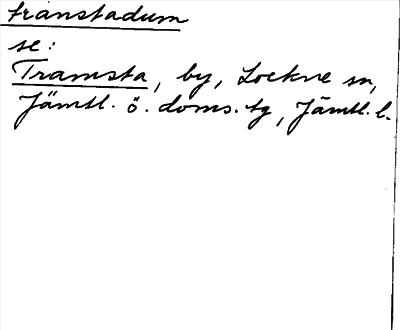 transtadum
se:
Tramsta, by, Lockne sn,
Jämtl. ö. doms. tg, Jämtl. l.